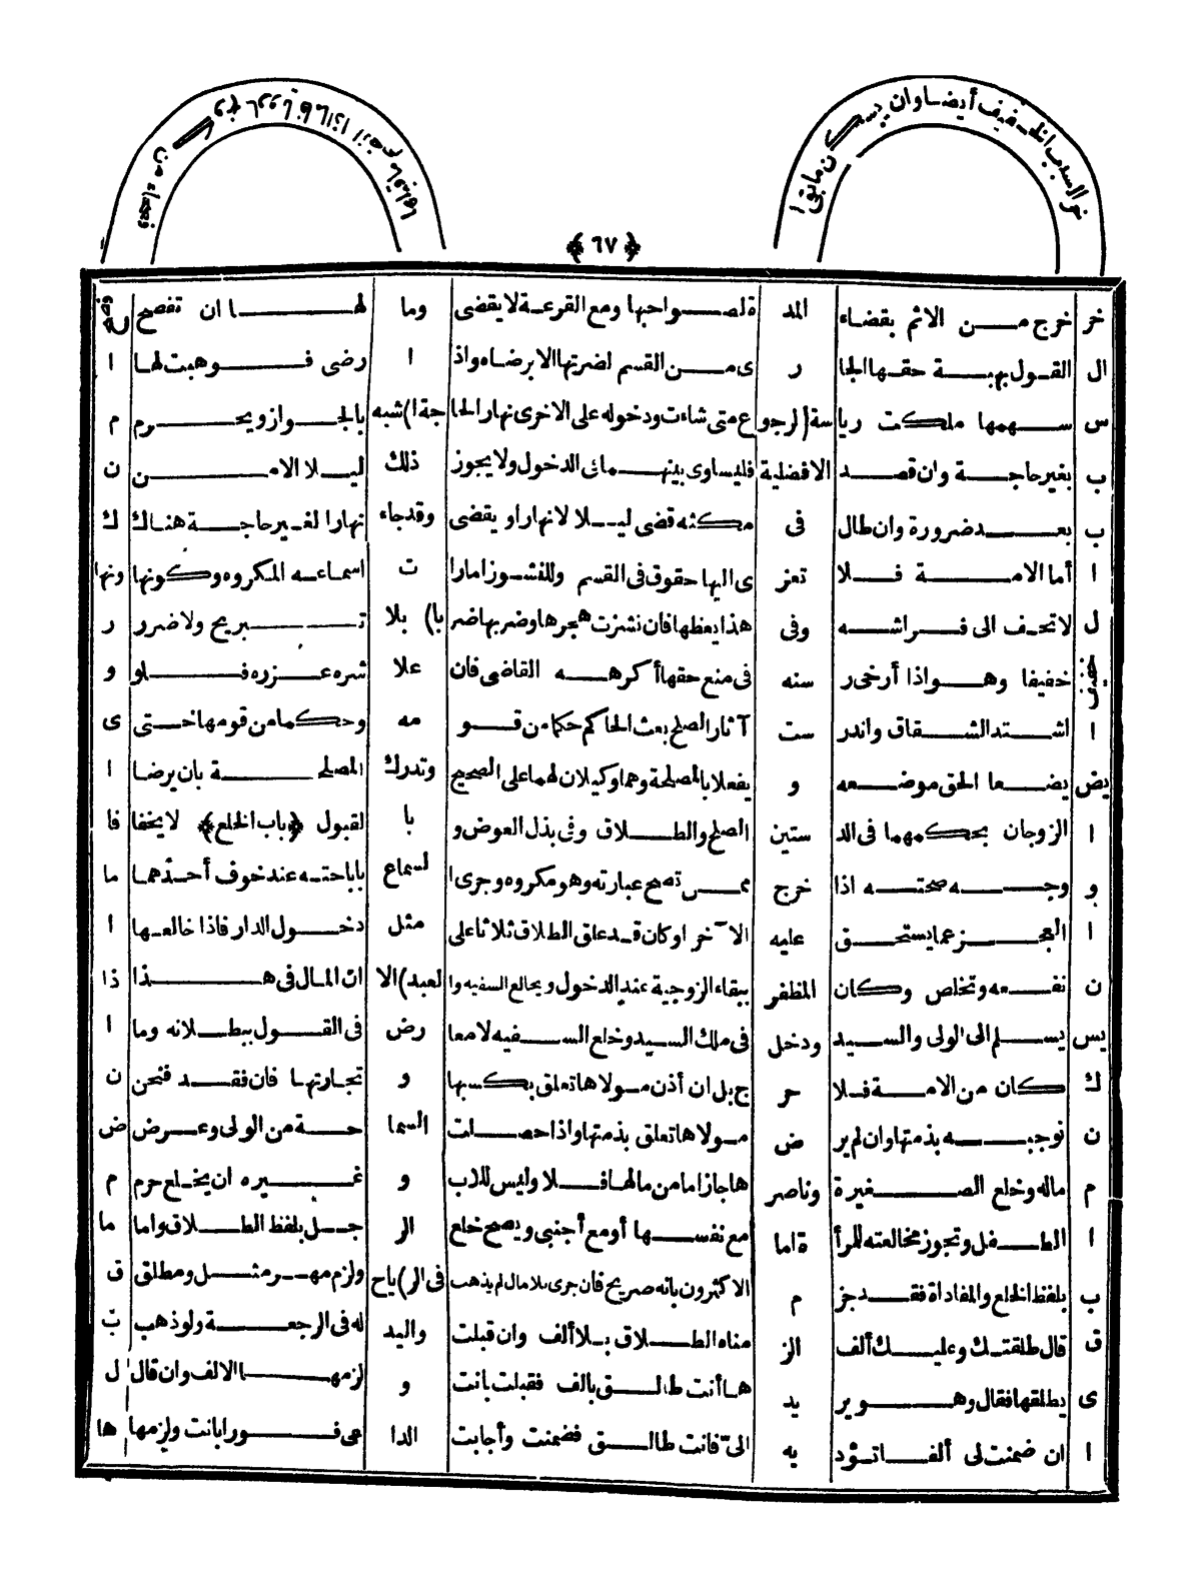 خر السبب الخفيف أيضا وان يسكن ما بقى ا
﴿ ٦٧ ﴾
خر خرج من الاثم بقضاء المد ة لصواحبها ومع القرعة لا يقضى وما لها ان تفصح
ال القول بهبة حقها الجا ر ى من القسم لضرتها الا برضاه واذ ا رضى فوهبت لها ا
س سهمها ملكت ريا سة(الرجو ع متى شاءت ودخوله على الاخرى نهار الحا جة ا)شبه بالجواز ويحرم م
ب بغير حاجة وان قصد الافضلية فليساوى بينهما فى الدخول ولا يجوز ذلك ليلا الا من ن
ب بعد ضرورة وان طال فى مكثه قضى ليلا لا نهارا و يقضى وقدجاء نهارا لغير حاجة هناك ك
ا أما الامة فلا تعز ى اليها حقوق فى القسم وللنشوز امارا ت اسماعه المكروه وكونها ونها
ل لا تحف الى فراشه وفى هذا يعظها فان نشزت هجرها وضربها ضر با) بلا تبريح ولا ضرر ر
خفيف خفيفا وهو اذا أرخى ر سنه فى منع حقها أكرهه القاضى فان علا شره عزره فلو و
ا اشتد الشقاق واندر ست آثار الصلح بعث الحاكم حكما من قو مه وحكما من قومها حتى ى
يض يضعا الحق موضعه و يفعلا بالمصلحة وهما وكيلان لهما على الصحيح وتدرك المصلحة بان يرضا ا
ا الزوجان بحكمهما فى الد ستين الصلح والطلاق وفى بذل العوض و با لقبول ﴿باب الخلع﴾ لا يخفا فا
و وجه صحته اذا خرج ممن تصح عبارته وهو مكروه وجرى ا لسماع باباحته عند خوف أحدهما ما
ا العجز عما يستحق عليه الآخر او كان قد علق الطلاق ثلاثا على مثل دخول الدار فاذا خالعها ا
ن نفعه وتخلص وكان المظفر ببقاء الزوجية عند الدخول ويخالع السفيه وا لعبد)الا ان المال فى هذا ذا
يس يسلم الى الولى والسيد ودخل فى ملك السيد وخلع السفيه لا معا رض فى القول ببطلانه وما ا
ك كان من الامة فلا حر ج بل ان أذن مولاها تعلق بكسبها و تجارتها فان فقد فنحن ن
ن نوجبه بذمتها وان لم ير ض مولاها تعلق بذمتها واذا حصلت السما حة من الولى وعرض ض
م ماله وخلع الصغيرة وناصر ها جاز اما من مالها فلا وليس للاب و غيره ان يخلع حرم م
ا الطفل وتجوز مخالعته للمرأ ة اما مع نفسها أو مع أجنبى ويصح خلع الر جل بلفظ الطلاق واما ما
ب بلفظ الخلع والمفاداة فقد جز م الاكثرون بانه صريح فان جرى بلا مال لم يذهب فى الر)ياح ولزم مهر مثل ومطلق ق
ق قال طلقتك وعليك ألف الز مناه الطلاق بلا ألف وان قبلت واليد له فى الرجعة ولو ذهب ب
ى يطلقها فقال وهو ير يد ها أنت طالق بالف فقبلت بانت و لزمها الالف وان قال ل
ا ان ضمنت لى ألفا تؤد يه الىّ فانت طالق فضمنت وأجابت الدا عى فورا بانت ولزمها ها